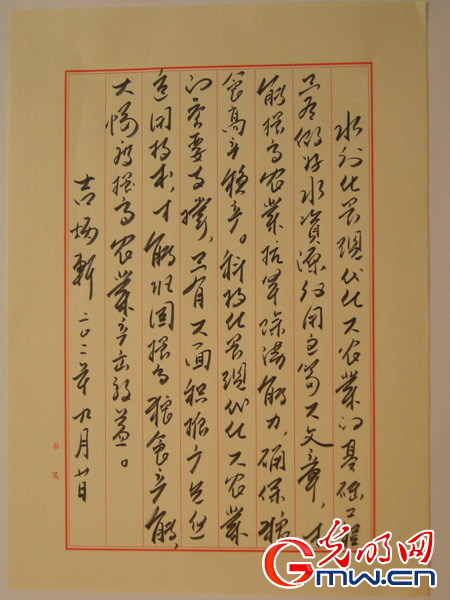 水利化是現代化大农業的基础工程
只有做好水資源利用这篇大文章，才
能提高农業抗旱除涝能力，确保粮
食高产稳产。科技化是現代化大农業
的重要支撑，只有大面积推广先进
适用技术，才能巩固提高粮食产能，
大幅度提高农業产出效益。
吉炳軒 二〇一二年九月廿日
书笺
光明网
Gmw.cn